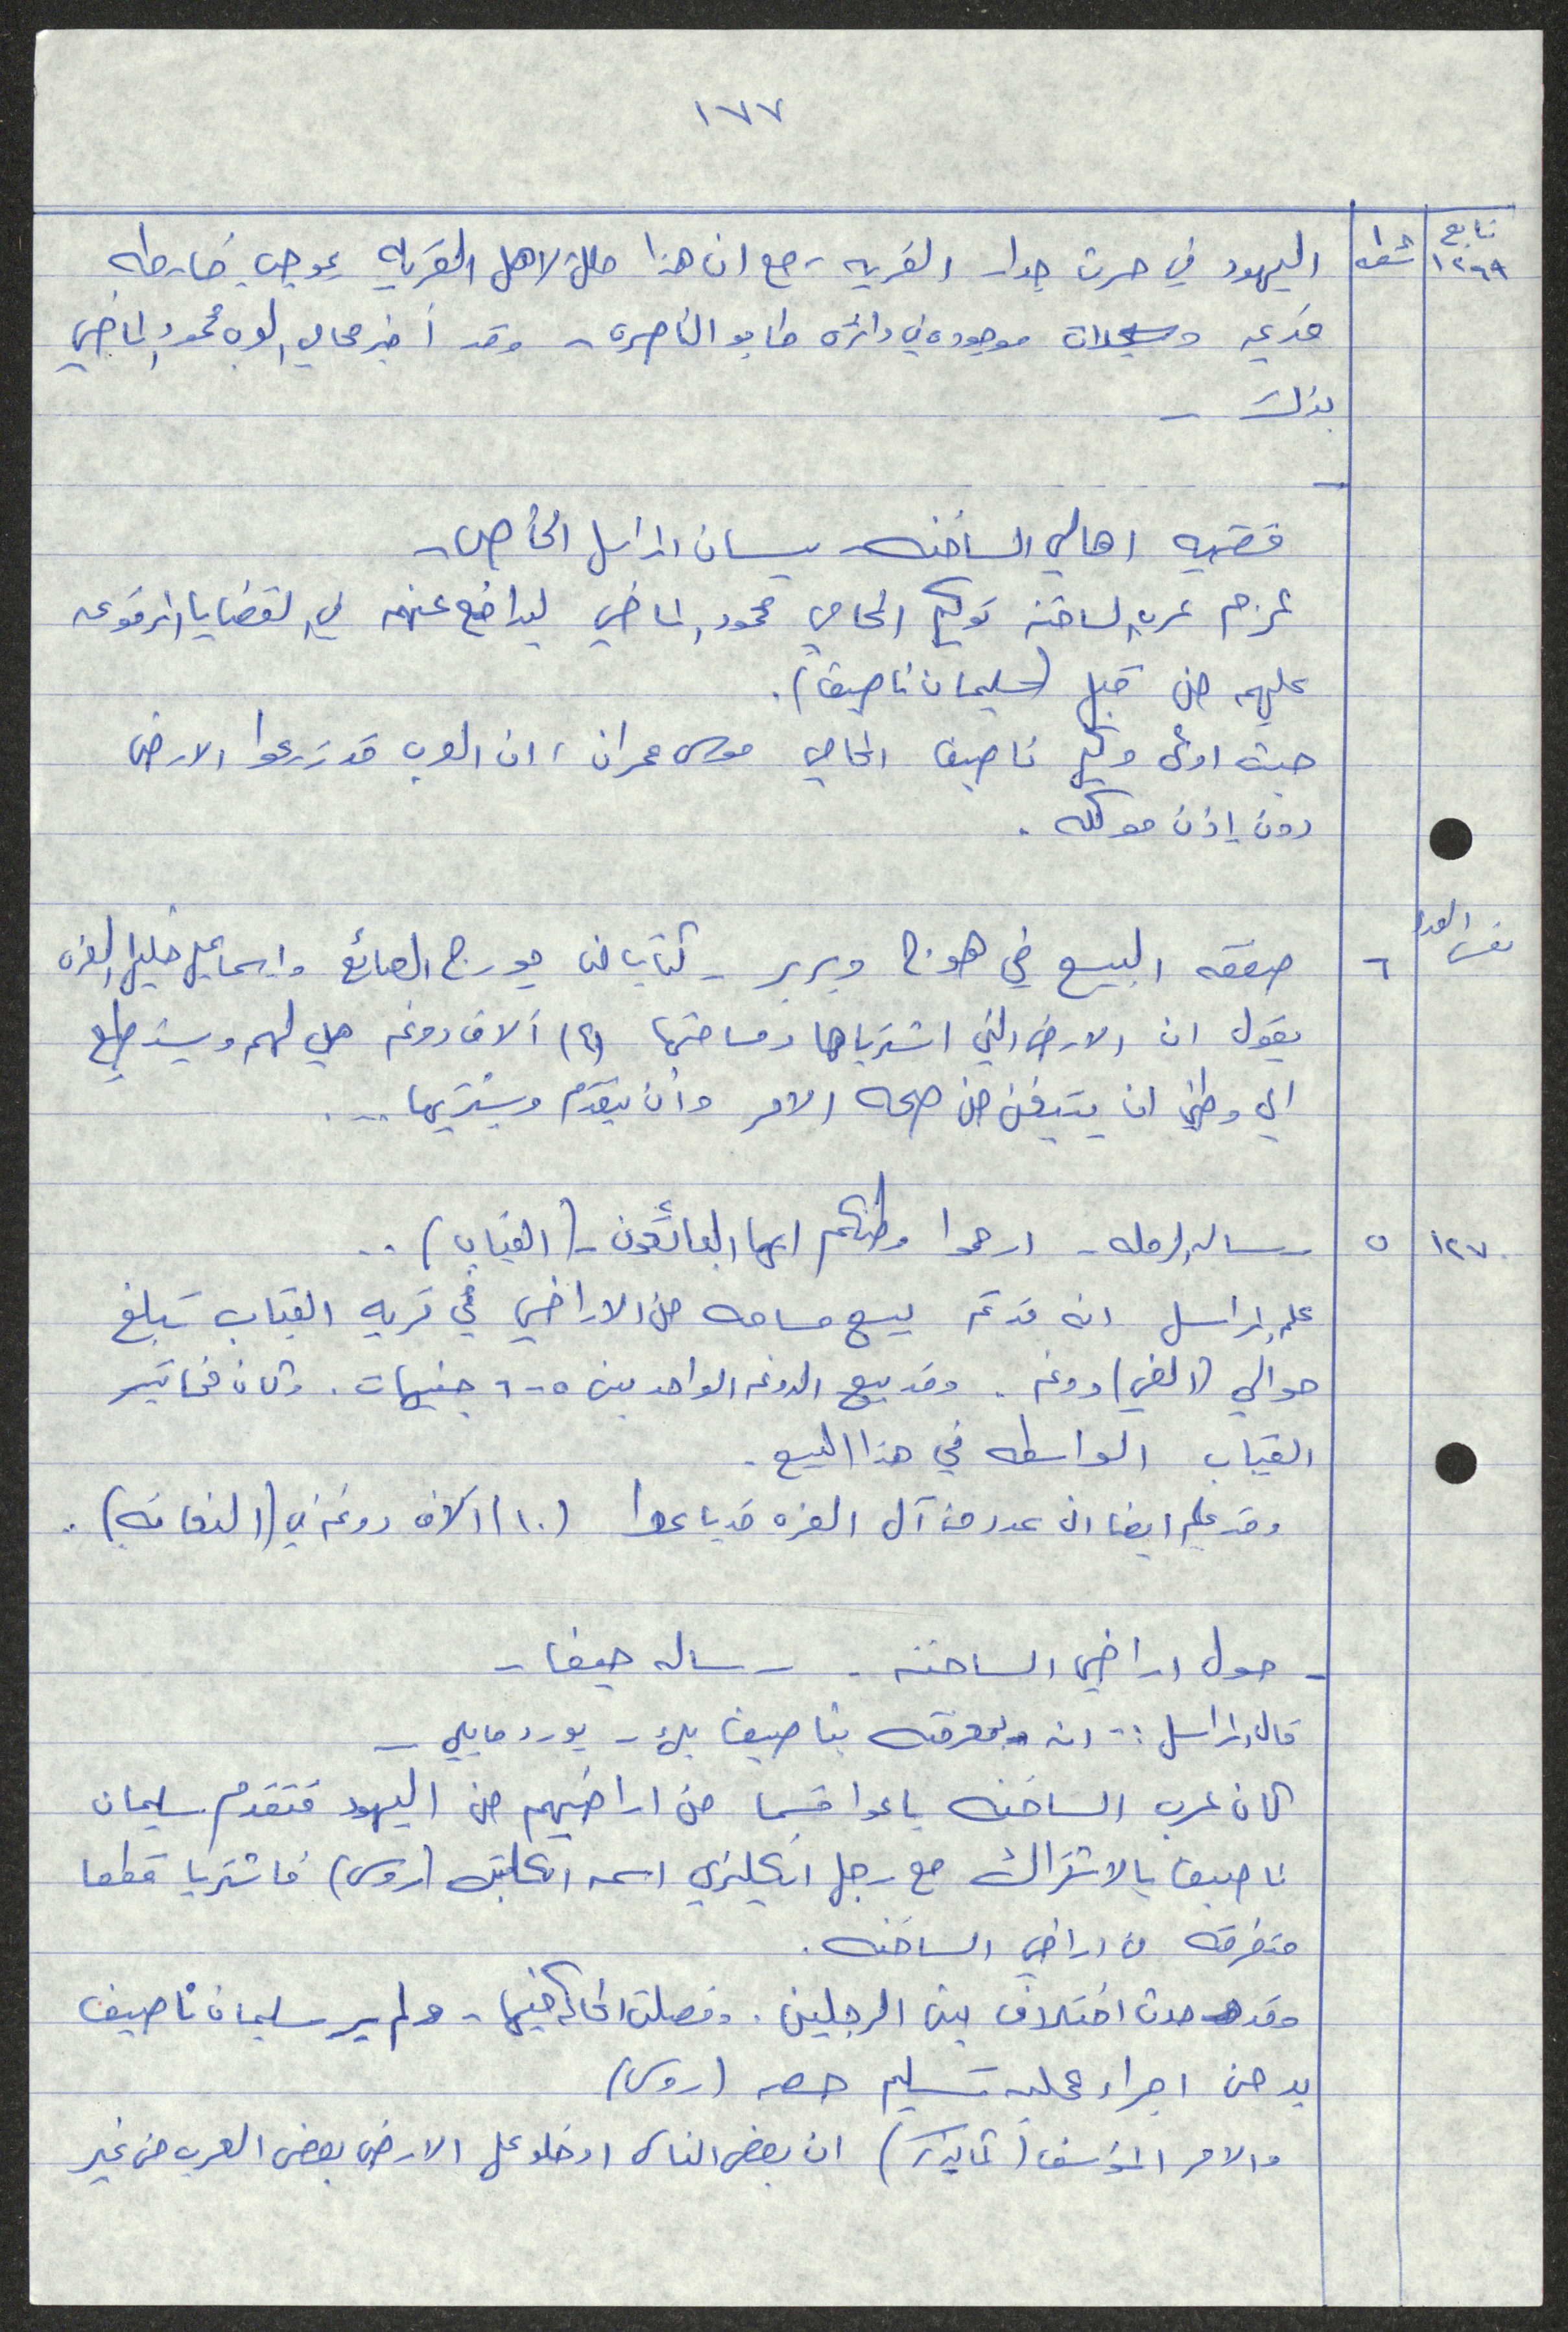 ١٧٧
تابع ١٢٦٩
اليهود في حرث جدار القريه، مع ان هذا ملك لاهل القريه بموجب خارطه
قديمه وسجلات موجوده في دائره طابو الناصره - وقد أخبر محامي العرب محمود الماضي
بذلك -
-
قضيه اهالي الساخنه - بيسان - لمراسل الخاص -
عزم عرب الساخنه توكيل المحامي محمود الماضي ليدافع عنهم في القضايا المرفوعه
عليهم من قبل (سليمان ناصيف).
حيث ادعى وكيل ناصيف المحامي موسى عمران، ان العرب قد زرعوا الارض
دون إذن موكله.
نفس العدد ٦ صفقه البيع في هوج وبرير - كتاب من جورج الصائغ واسماعيل خليل الغزه
يقول ان الارض التي اشترياها ومساحتها (٤) آلاف دونم هي لهم ويستطيع
اي وطني ان يتيقن من صحه الامر وأن يتقدم ويشتريها ...
١٢٧٠ ٥ رساله الرمله - ارحموا وطنكم ايها البائعون - (القباب) ..
علم المراسل انه قد تم بيع مساحه من الاراضي في قريه القباب تبلغ
حوالي (الفي) دونم. وقد بيع الدونم الواحد بين ٥-٦ جنيهات. وكان مخاتير
القباب الواسطه في هذا البيع.
وقد علم ايضا ان عدد من آل الغزه قد باعوا (١٠) آلاف دونم في (النعانه).
- حول اراضي الساخنه - رساله حيفا -
قال المراسل :- انه وبمعرفته بناصيف بك - يورد مايلي -
كان عرب الساخنه باعوا قسما من اراضيهم من اليهود فتقدم سليمان
ناصيف بالاشتراك مع رجل انكليزي اسمه الكابتن (روس) فاشتريا قطعا
متفرقه من اراضي الساخنه.
وقد حدث اختلاف بين الرجلين. وفصلت المحاكم فيها - ولم ير سليمان ناصيف
بد من اجراء عمليه تسليم حصه (روس)
والامر المؤسف ان بعض الناس ادخلو على الارض بعض العرب من غير